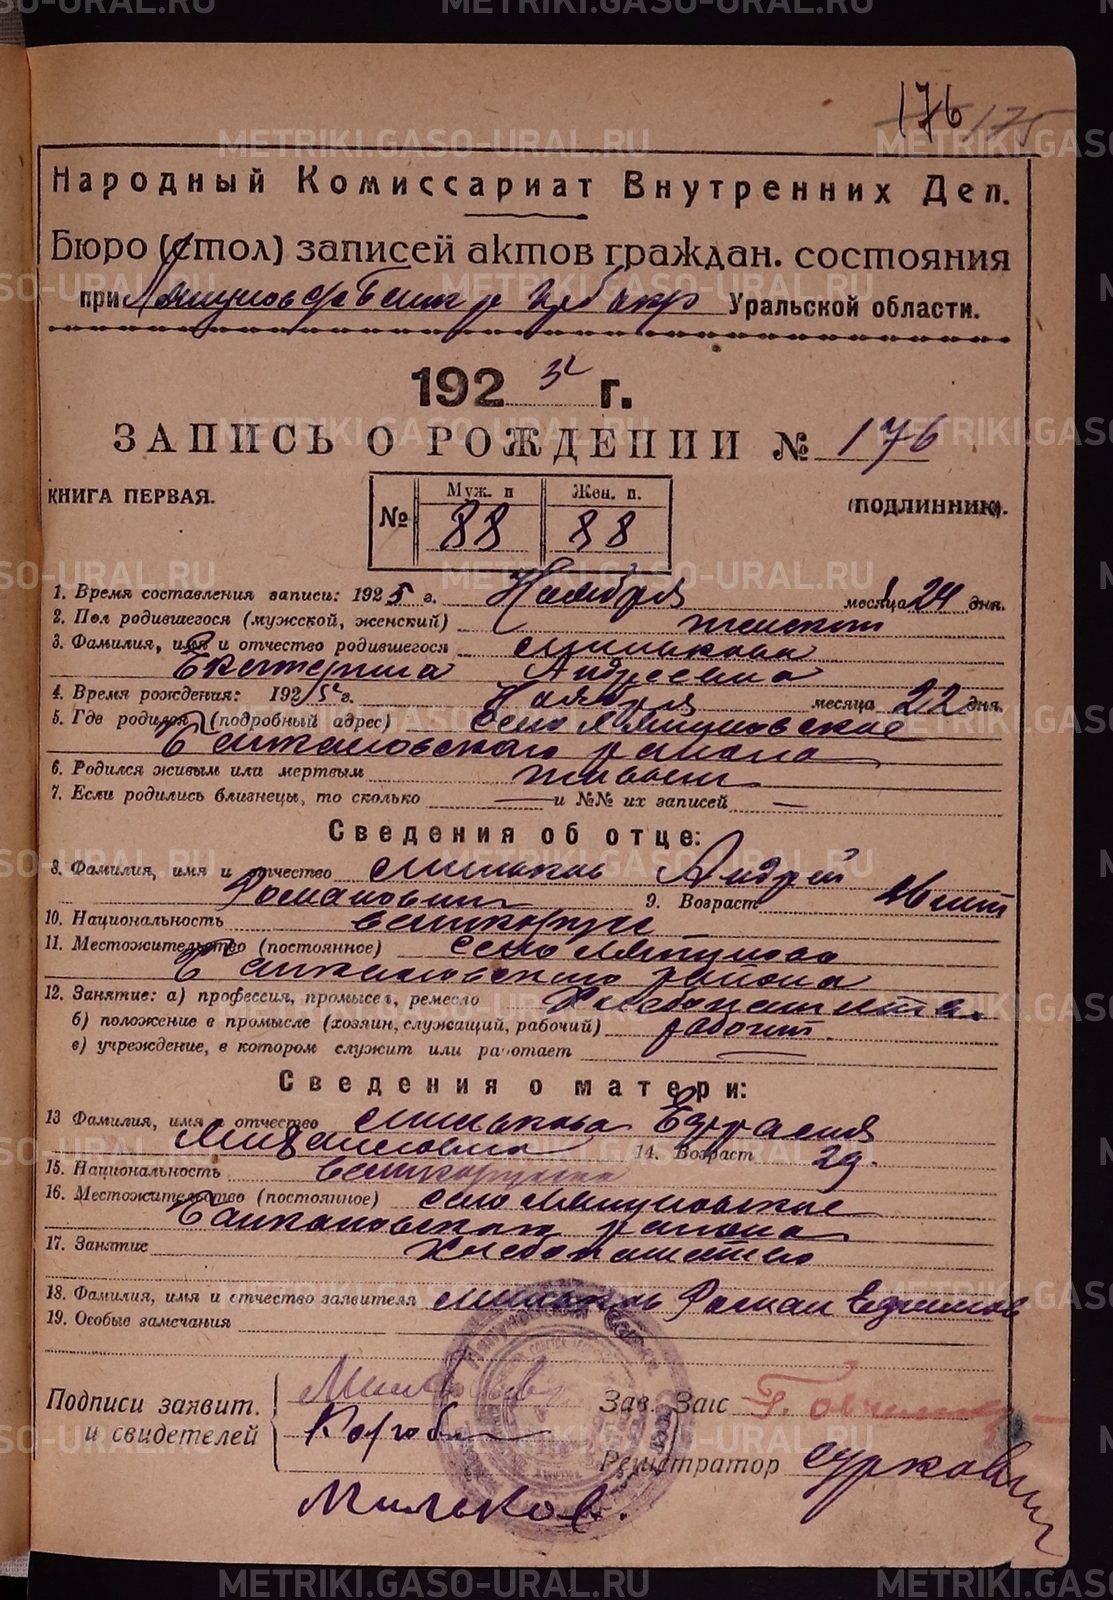 176 175
Народный Комиссариат Внутренних Дел.
Бюро (стол) записей актов граждан. состояния
при Уральской области.
1925 г.
ЗАПИСЬ О РОЖДЕНИИ № 176
КНИГА ПЕРВАЯ. (ПОДЛИННИК).
№ Муж. п Жен. п.
88 88
1. Время составления записи: 1925 г. Ноября месяца 24 дня.
2. Пол родившегося (мужской, женский) женский
3. Фамилия, имя и отчество родившегося Милькова
Екатерина Андреевна
4. Время рождения: 1925 г. Ноября месяца 22 дня.
5. Где родился (подробный адрес) село Ляпуновское
Байкаловского района
6. Родился живым или мертвым живым
7. Если родились близнецы, то сколько — и №№ их записей —
Сведения об отце:
8. Фамилия, имя и отчество Мильков Андрей
Романович 9. Возраст 26 лет
10. Национальность великорус
11. Местожительство (постоянное) село Ляпуново
Байкаловского района
12. Занятие: а) профессия, промысел, ремесло Хлебопашество
б) положение в промысле (хозяин, служащий, рабочий)
в) учреждение, в котором служит или работает —
Сведения о матери:
13 Фамилия, имя и отчество Милькова
Михайловна 14. Возраст 29.
15. Национальность великоруска
16. Местожительство (постоянное) село Ляпуновское
Байкаловского района
17. Занятие хлебопашество
18. Фамилия, имя и отчество заявителя Мильков Роман Ефимов
19. Особые замечания
Подписи заявит. Зав. Загс
и свидетелей Регистратор
Мильков.
METRIKI.GASO-URAL.RU